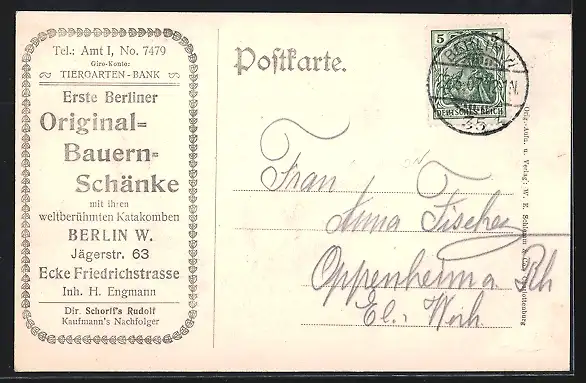 Tel.: Amt I, No. 7479
Giro-Konto:
TIERGARTEN-BANK
Erste Berliner
Original-
Bauern-
Schänke
mit ihren
weltberühmten Katakomben
BERLIN W.
Jägerstr. 63
Ecke Friedrichstrasse
Inh. H. Engmann
Dir. Schorff's Rudolf
Kaufmann's Nachfolger
Postkarte.
5 5
DEUTSCHES REICH
BERLIN W
35
Frau
Anna Fischer
Oppenheim a. Rh
Orig.-Aufn. u. Verlag: W. E. Charlottenburg